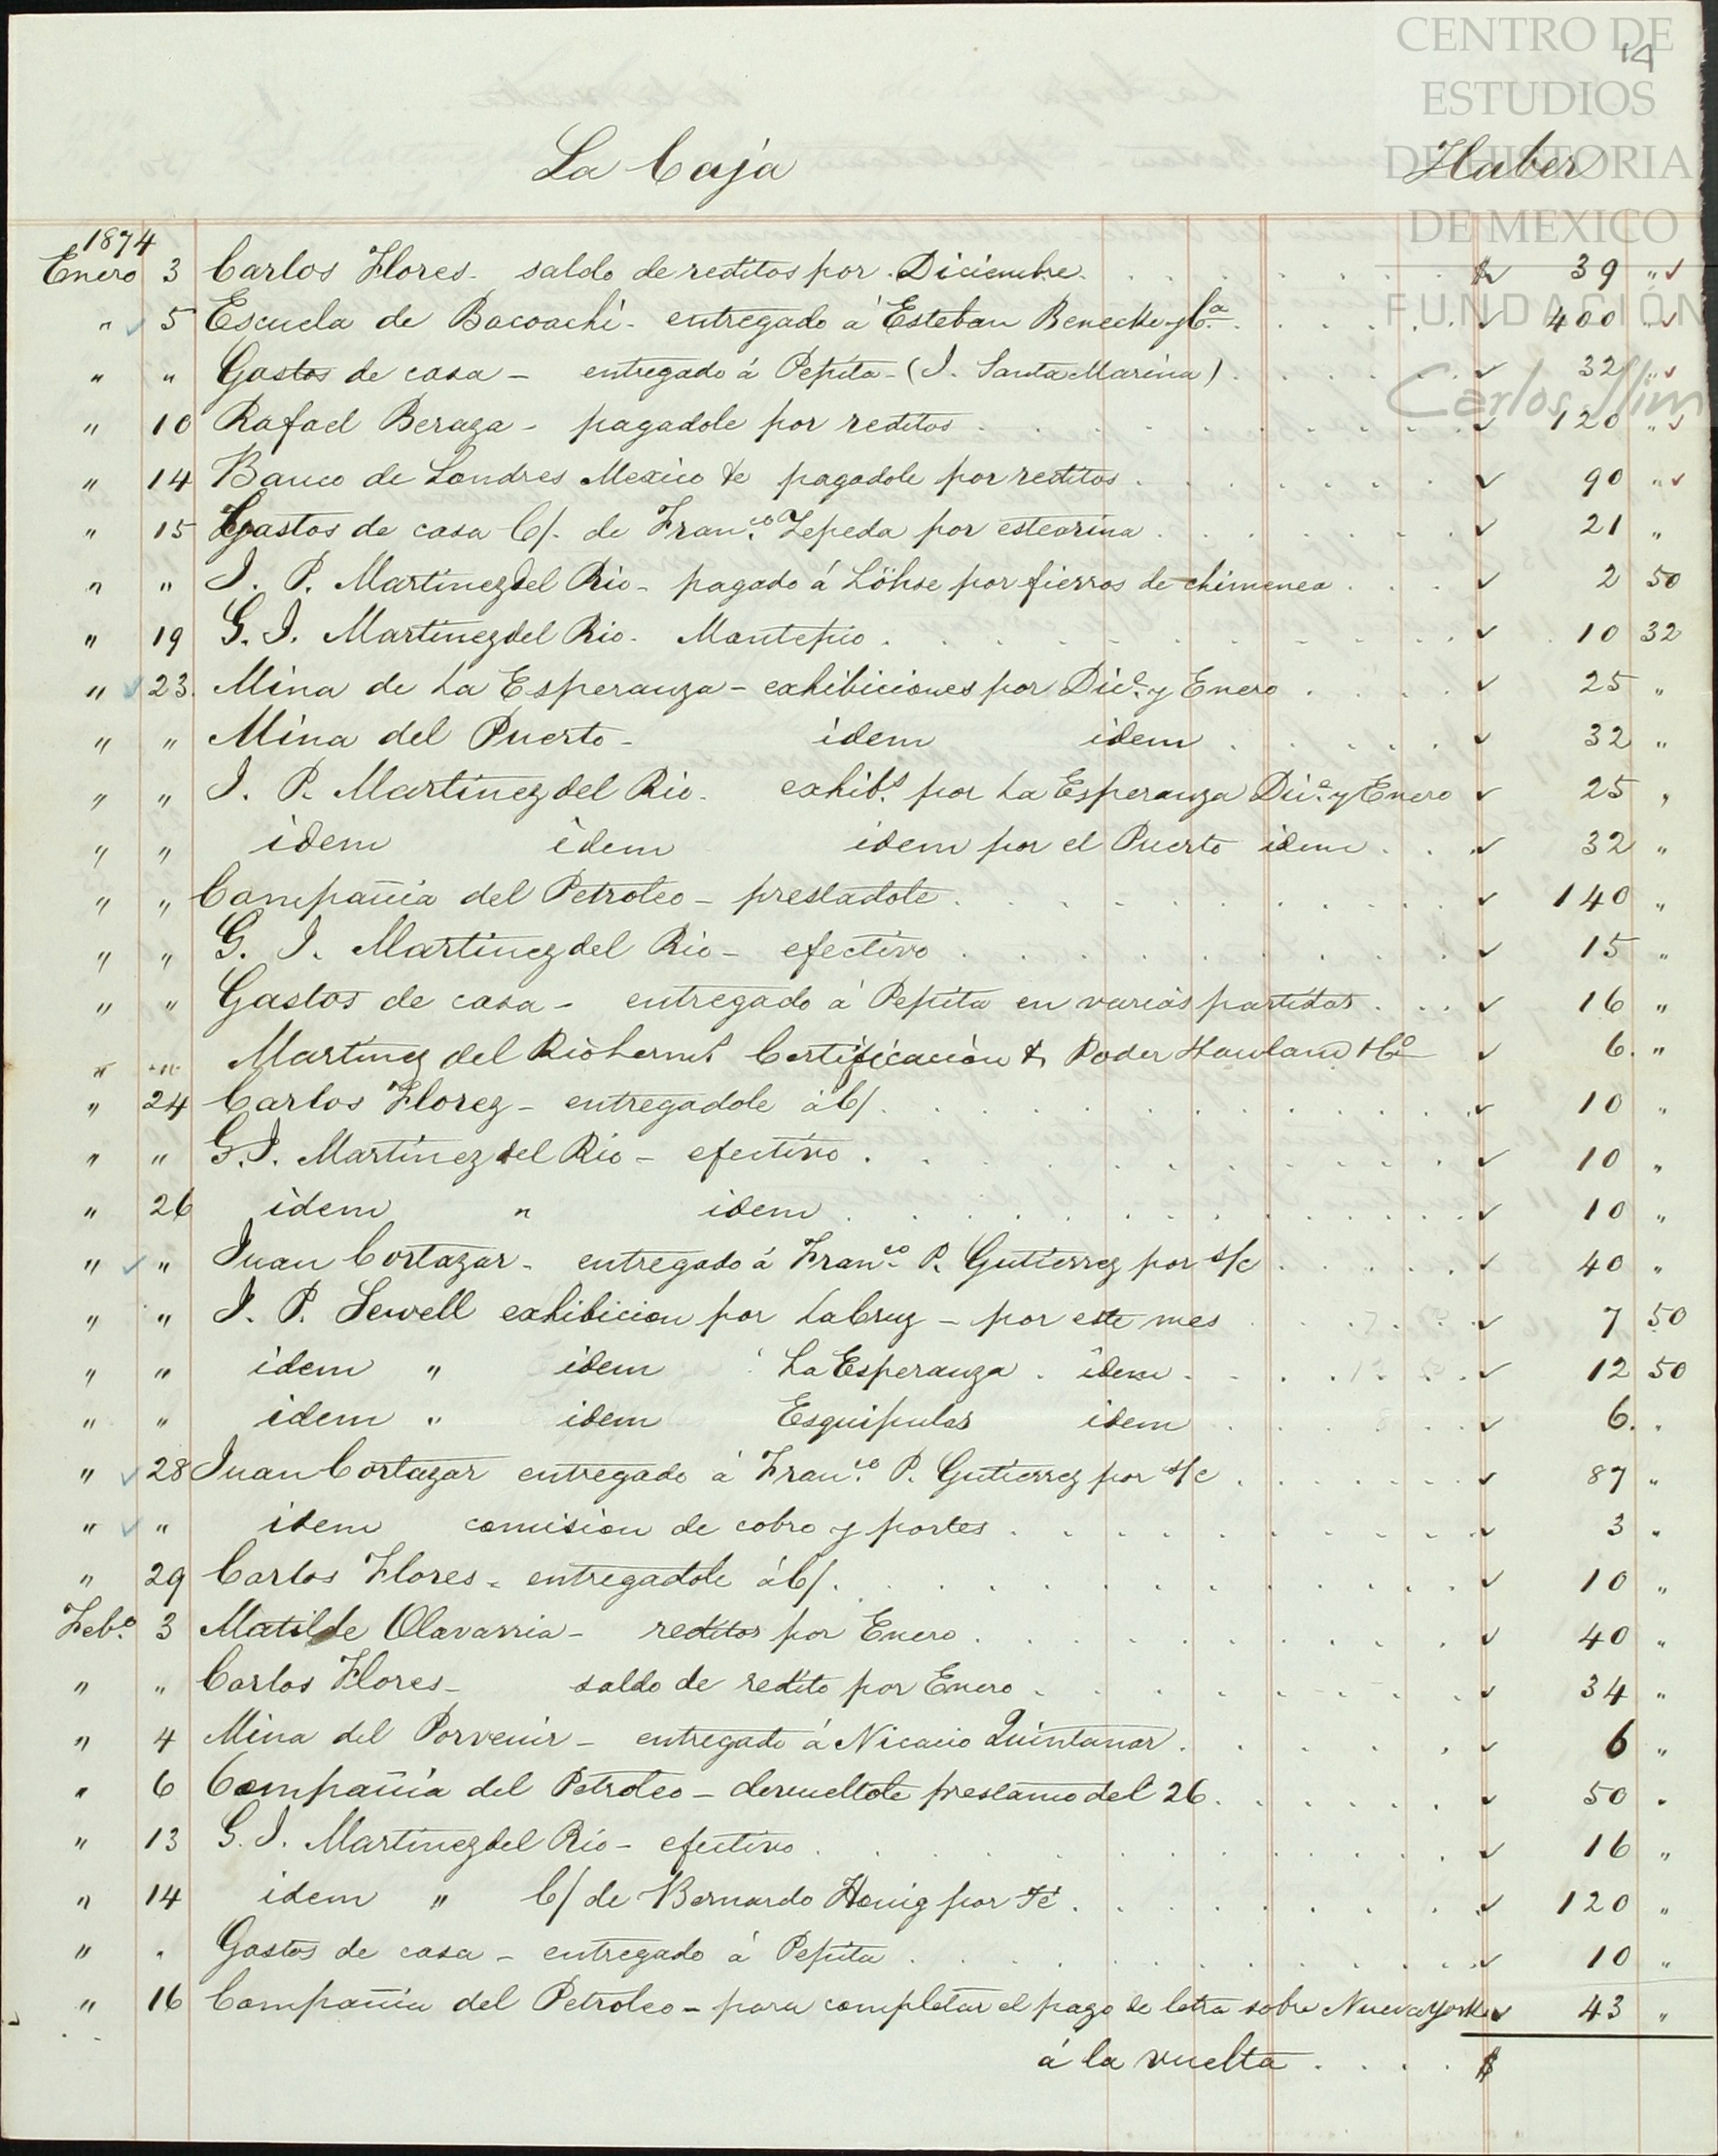 CENTRO DE
14
ESTUDIOS
DE HISTORIA
DE MEXICO
FUNDACIÓN
Carlos Slim
La Caja Haber
1874
Enero 3 Carlos Flores - saldo de reditos por Diciembre $ 39 "
" 5 Escuela de Bacoachi - entregado á Esteban Benecke y Ca. 400 "
" " Gastos de casa - entregado á Pepita - (J. Santa Marina) 32 "
" 10 Rafael Beraza - pagadole por reditos 120 "
" 14 Banco de Londres Mexico &c pagadole por reditos 90 "
" 15 Gastos de casa C/. de Franco. Zepeda por estearina 21 "
" " J. P. Martinez del Rio - pagado á Löhse por fierros de chimenea 2 50
" 19 G. I. Martinez del Rio - Montepio 10 32
" 23 Mina de La Esperanza - exhibiciones por Dice. y Enero 25 "
" " Mina del Puerto - idem idem 32 "
" " J. P. Martinez del Rio - exhibs. por La Esperanza Dice. y Enero 25 "
" " idem idem idem por el Puerto idem 32 "
" " Compañia del Petroleo - prestadole 140 "
" " G. I. Martinez del Rio - efectivo 15 "
" " Gastos de casa - entregado á Pepita en varias partidas 16 "
" " Martinez del Rio herms. Certificación & Poder Howland & Co 6. "
" 24 Carlos Florez - entregadole á C/. 10 "
" " G. I. Martinez del Rio - efectivo 10 "
" 26 idem " idem 10 "
" " Juan Cortazar - entregado á Franco. P. Gutierrez por s/c 40 "
" " J. P. Sewell exhibicion por La Cruz - por este mes 7 50
" " idem " idem La Esperanza idem 12 50
" " idem " idem Esquipulas idem 6. "
" 28 Juan Cortazar entregado á Franco. P. Gutierrez por s/c 87 "
" " idem comision de cobro y portes 3 "
" 29 Carlos Flores - entregadole á C/. 10 "
Febo. 3 Matilde Olavarria - reditos por Enero 40 "
" " Carlos Flores - saldo de redito por Enero 34 "
" 4 Mina del Porvenir - entregado á Nicacio Quintanar 6 "
" 6 Compañia del Petroleo - devueltole prestamo del 26 50 "
" 13 G. I. Martinez del Rio - efectivo 16 "
" 14 idem " C/ de Bernardo Honig por Té 120 "
" " Gastos de casa - entregado á Pepita 10 "
" 16 Compañia del Petroleo - para completar el pago de letra sobre Nueva York 43 "
á la vuelta $